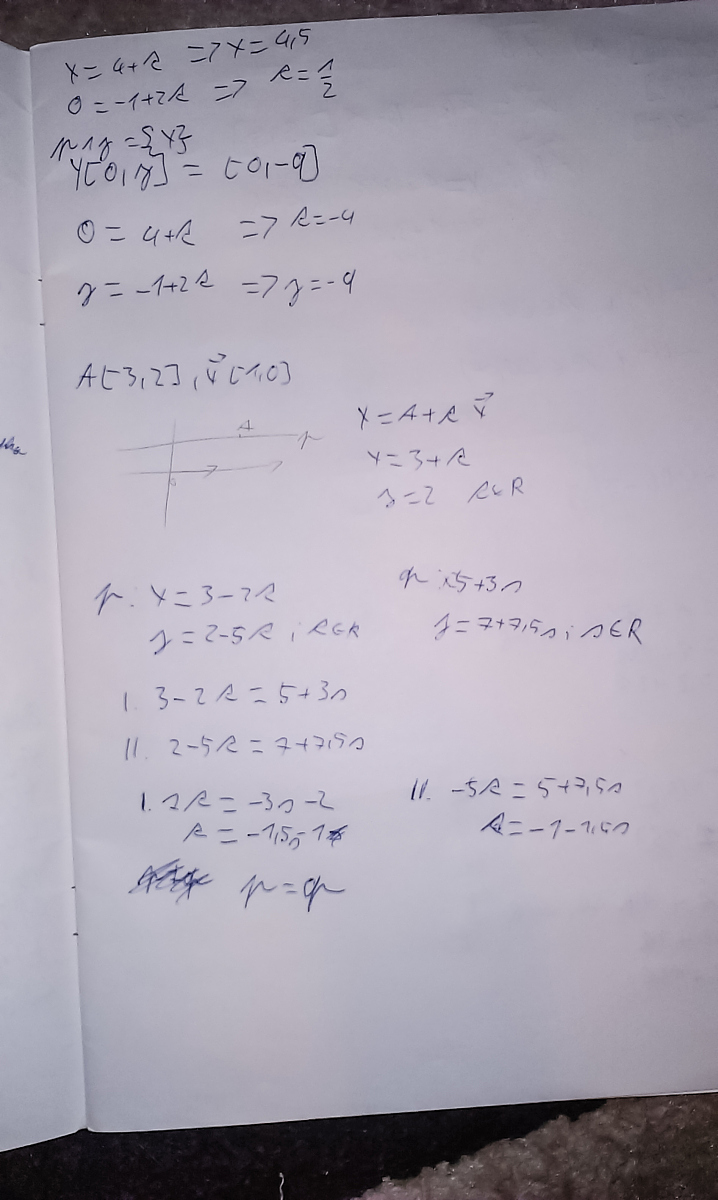 x = 4+k => x = 4,5
0 = -1+2k => k = 1/2
p ∩ y = {Y}
Y[0, y] = [0, -9]
0 = 4+k => k = -4
y = -1+2k => y = -9
A[3,2], v⃗(1,0)
A
p
X = A + k v⃗
x = 3+k
y = 2 k∈R
p: x = 3-2k
y = 2-5k ; k∈R
q: x5+3s
y = 7+7,5s ; s∈R
I. 3-2k = 5+3s
II. 2-5k = 7+7,5s
I. 2k = -3s-2
k = -1,5s-1
II. -5k = 5+7,5s
k = -1-1,5s
p = q